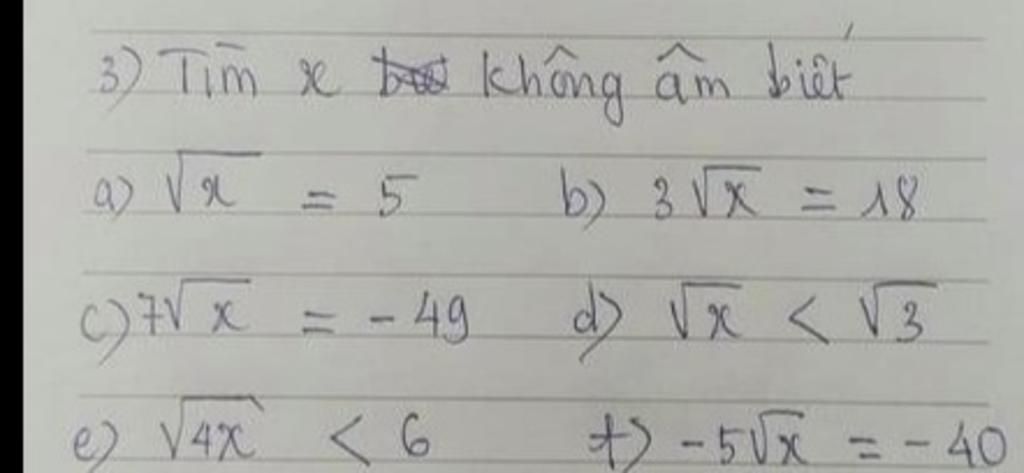 3) Tìm x không âm biết
a) √x = 5 b) 3√x = 18
c) 7√x = -49 d) √x < √3
e) √4x < 6 f) -5√x = -40